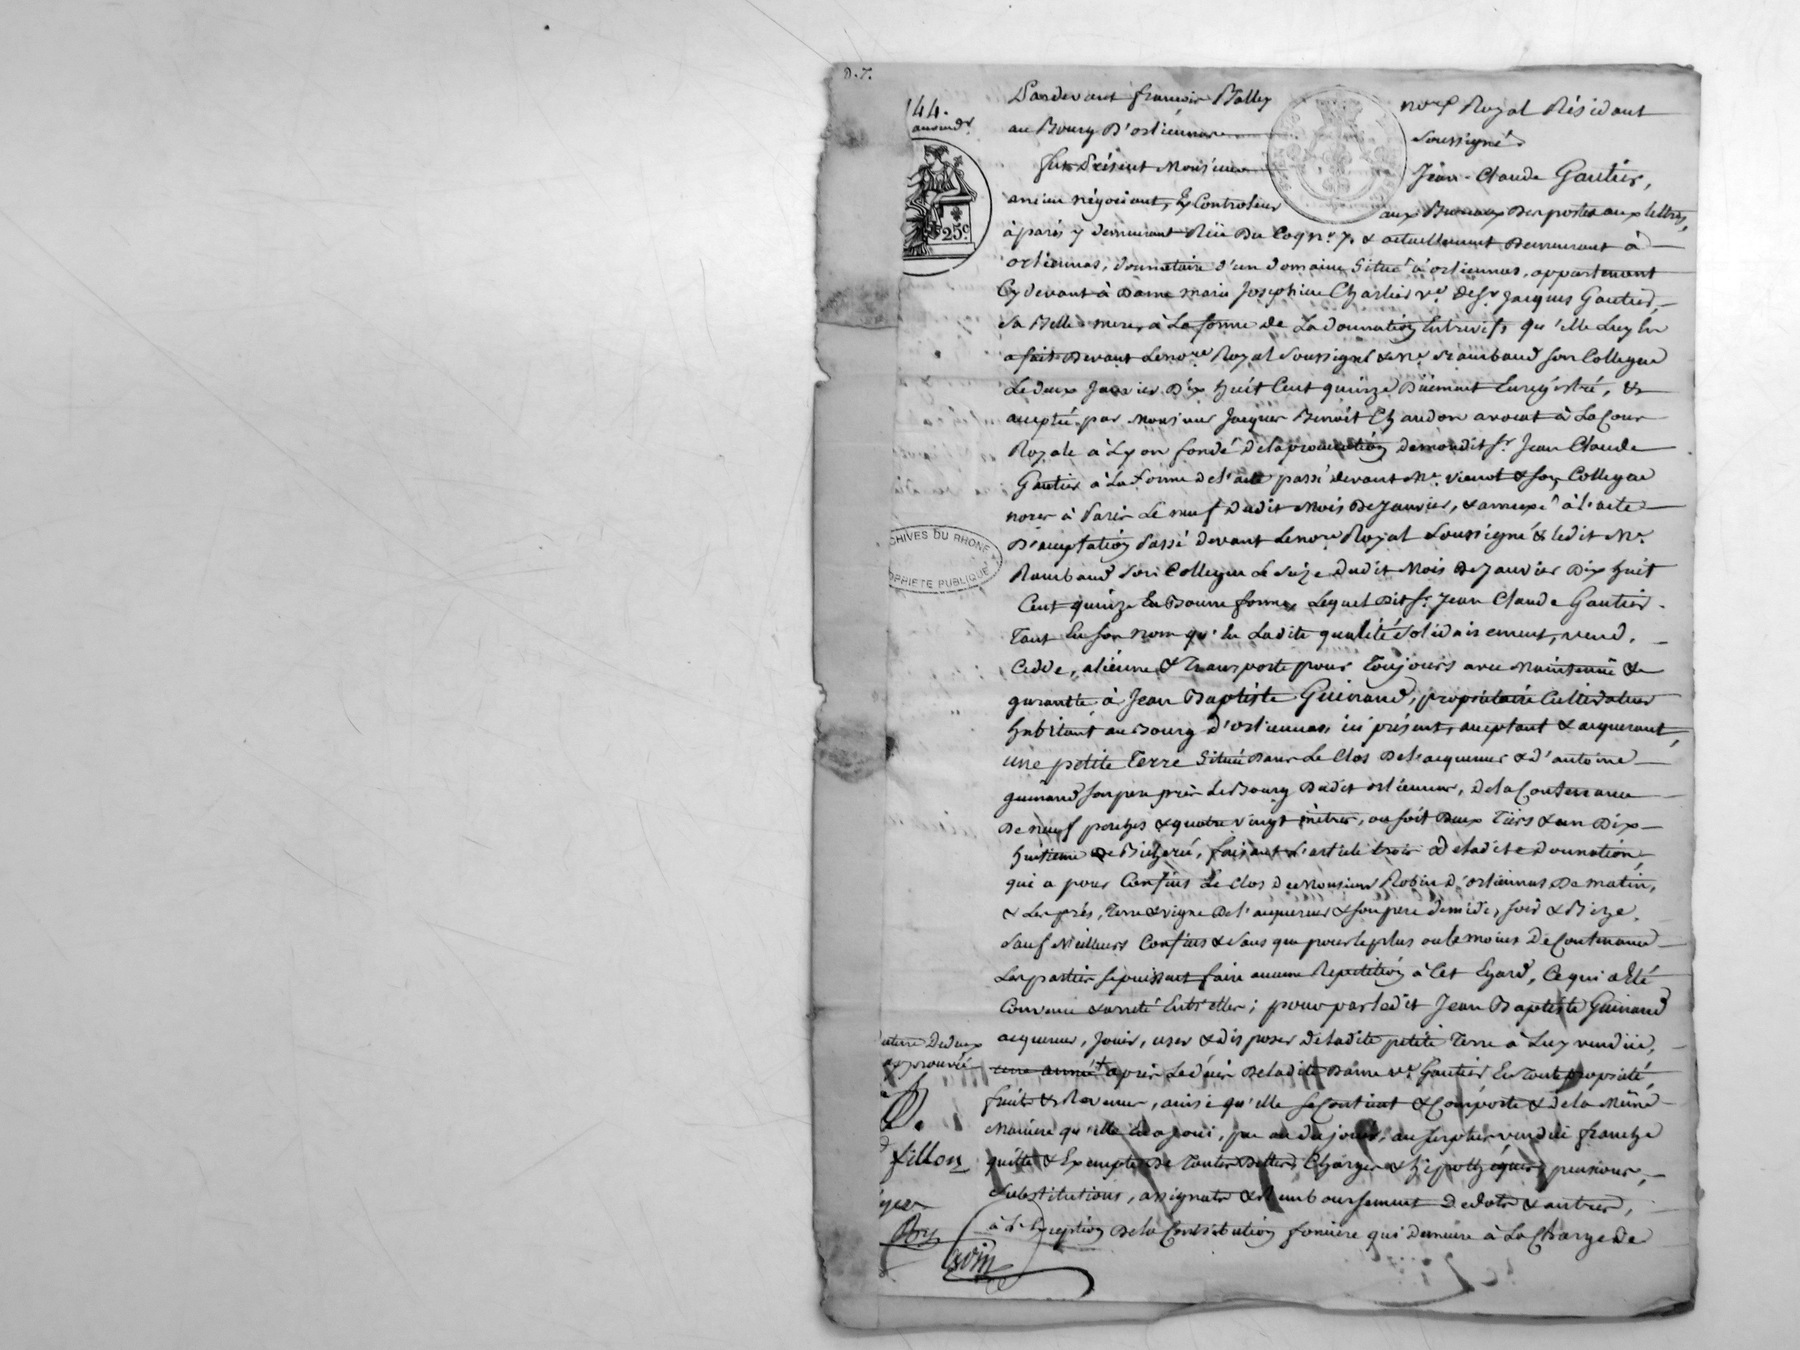 D.7.
144.
25c
ARCHIVES DU RHONE
PROPRIETE PUBLIQUE
Pardevant françois Balley nore Royal Résidant
au Bourg d'orliennas soussigné
fut Présent Monsieur Jean-Claude Gautier,
ancien négociant, Ex Controleur aux Bureaux des postes aux lettres,
à paris y demeurant Rüe Du Coq n° 7. & actuellement Demeurant à
orliennas, donnataire d'un domaine Situé à orliennas, appartenant
Cy devant à Dame marie Josephine Charlier ve. de Sr. Jacques Gautier,
Sa Belle mere, à La forme de La donnation Entrevifs qu'elle Luy En
a fait Devant Le nore Royal Soussigné & Me. Raimbaud Son Collegue
Le deux Janvier Dix huit Cent quinze Düement Enregistré, &
accepté par Monsieur Jacques Benoit Chandon avocat à La Cour
Royale à Lyon fondé de la procuration de mondit Sr. Jean Claude
Gautier à La forme de l'acte passé devant Me. vienot & Son Collegue
nores à Paris Le neuf Dudit Mois De Janvier, & annexé à l'acte
D'acceptation Passé devant Le nore Royal Soussigné & ledit Me.
Raimbaud Son Collegue Le Seize dudit Mois De Janvier Dix huit
Cent quinze En Bonne forme, Lequel Dit Sr. Jean Claude Gautier
Tant En Son nom qu'En Ladite qualité Solidairement, vend,
Cedde, aliénne & Transporte pour Toujours avec Maintenüe &
garantie à Jean Baptiste Guinand, propriétaire Cultivateur
habitant au Bourg d'orliennas, ici présent, acceptant & acquerant,
une petite Terre Située Dans Le Clos De l'acquereur & d'antoine
guinand Son pere près Le Bourg Dudit orliennas, de la Contenance
De neuf perches & quatre vingt mètres, ou soit Deux Tiers & un Dix
huitieme De Bicherée, faisant L'article trois de ladite donnation,
qui a pour Confins Le Clos de Monsieur Robin d'orliennas De matin,
& Les prés, Terre & vigne De l'acquereur & Son pere de midi, soir & Bize.
Sauf Meilleurs Confins & Sans que pour le plus ou le moins De Contenance
Les parties se puissent faire aucune Repetition à Cet Egard, Ce qui a Eté
Convenu & arreté Entr'elles; pour par ledit Jean Baptiste Guinand
acquereur, Jouir, user & disposer de ladite petite Terre à Luy vendüe,
une année après Le décès De ladite Dame ve. Gautier En Toute propriété,
fruits & Revenus, ainsi qu'elle Se Contient & Comporte & de la Même
Maniere qu'elle En a joui, pu ou dû jouir, au Surplus vendüe franche
quitte & Exempte De Toutes Dettes, Charges & hipothéques, pensions,
Substitutions, assignats & Remboursement De dots & autres,
à L'Exception De la Contribution fonciere qui demeure à La Charge de
approuvée
fillon